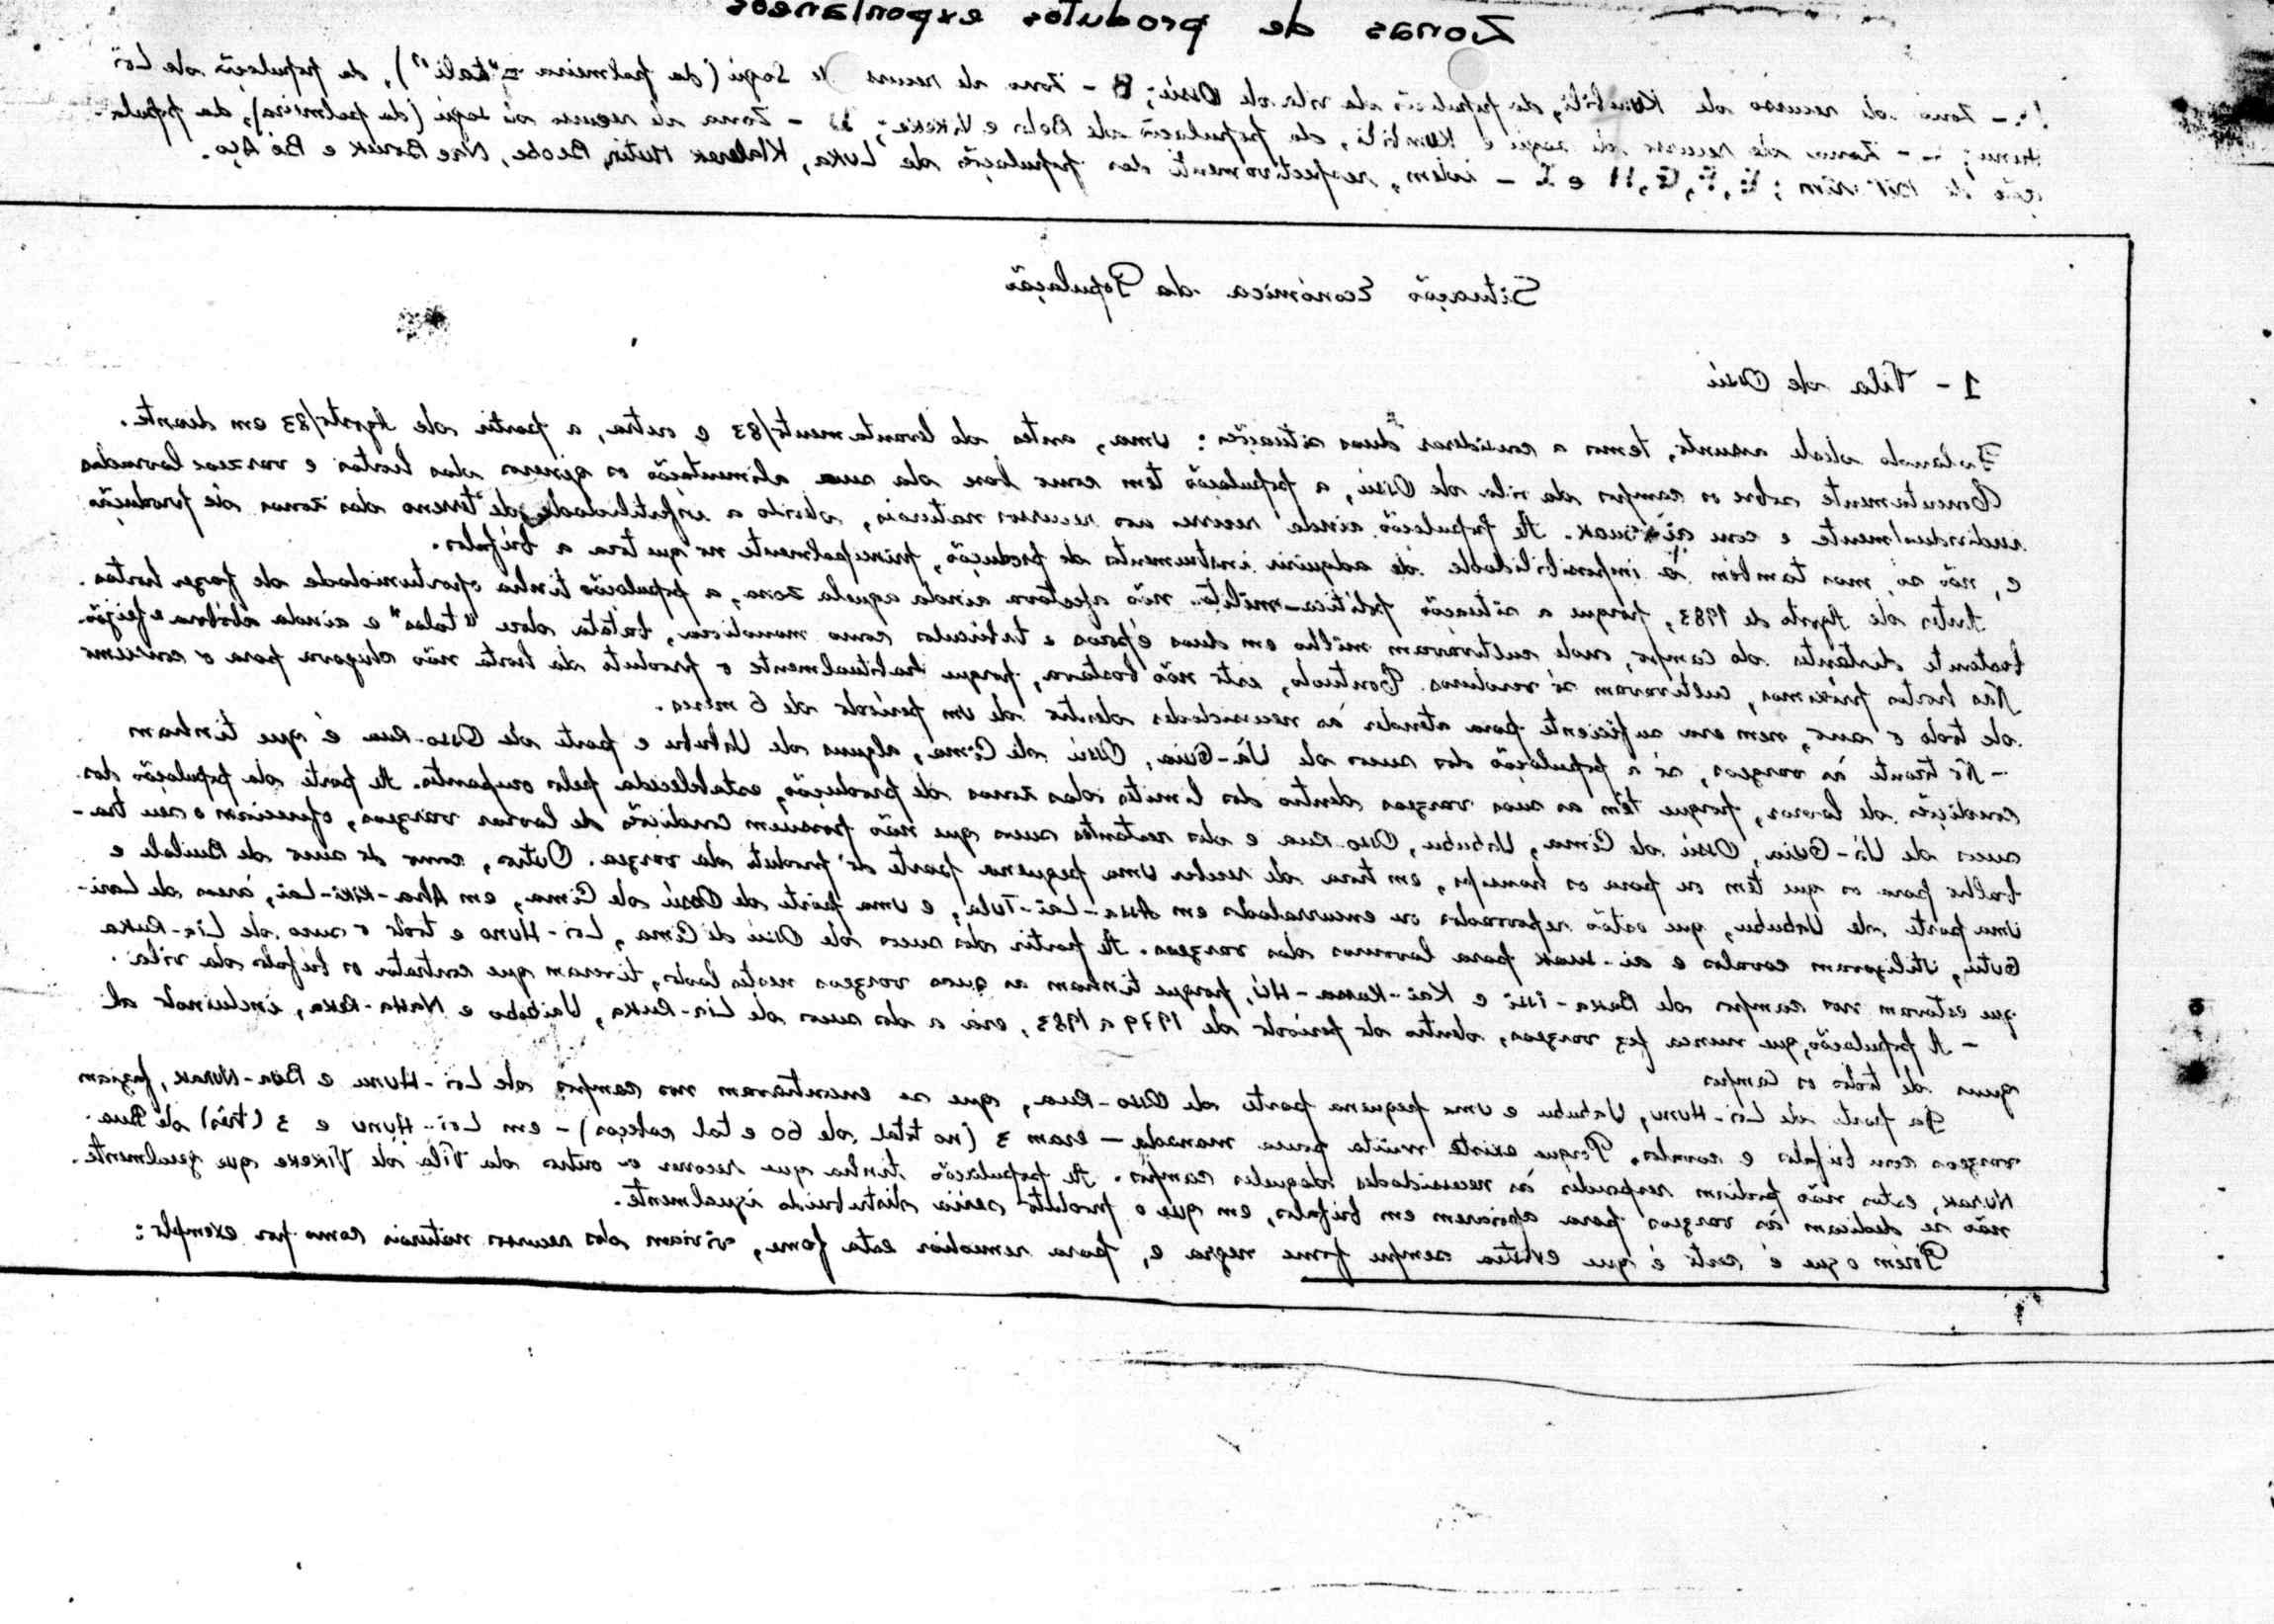 Zonas de produtos expontaneos
- Zona de recurso de Kumbili, da população da vila de Ossú; B - Zona de recurso de Sagú (da palmeira = "tali"), da população de Loi
Hunu; - Zona de recurso de sagú e Kumbili, da população de Belo e Vikeke; D - Zona de recurso de sagú (da palmeira), da popula-
ção de ; E, F, G, H e I - idem, respectivamente das populações de Luka, Klalerek Mutin, Beobe, Nae Boruk e Bé Aço.
Situação Económica da População
1 - Vila de Ossú
Falando deste assunto, temos a considerar duas situações: uma, antes do levantamento/83 e outra, a partir de Agosto/83 em diante.
Concretamente sobre os campos da vila de Ossú, a população tem como base da sua alimentação os géneros das hortas e varzeas lavradas
rudimentalmente e com ai-suak. A população ainda recorreu aos recursos naturais, devido a infertilidade de terreno das zonas de produção
e, não só, mas também à impossibilidade de adquirir instrumentos de produção, principalmente no que toca a búfalos.
Antes de Agosto de 1983, porque a situação política-militar não afectava ainda aquela zona, a população tinha oportunidade de fazer hortas
bastante distantes do campo, onde cultivavam milho em duas épocas e tubérculos como mandioca, batata doce "talas" e ainda abóbora e feijão.
Nas hortas próximas, cultivavam só verduras. Contudo, isto não bastava, porque habitualmente o produto da horta não chegava para o consumo
de todo o ano, nem era suficiente para atender às necessidades dentro de um período de 6 meses.
- No tocante às varzeas, só a população dos sucos de Uá-Guia, Ossú de Cima, alguns de Uabubu e parte de Osso-Rua é que tinham
condições de lavrar, porque têm as suas varzeas dentro dos limites das zonas de produção, estabelecida pelos ocupantes. A parte da população dos
sucos de Uá-Guia, Ossú de Cima, Uabubu, Osso-Rua e dos restantes sucos que não possuem condições de lavrar varzeas, ofereciam o seu tra-
balho para os que têm ou para os hansip, em troca de receber uma pequena parte do produto da varzea. Outros, como do suco de Builale e
uma parte de Uabubu, que estão reforçados ou encurralados em Assa-Lai-Tula, e uma parte de Ossú de Cima, em Aha-Kiki-Lai, áreas de Lari-
Gutu, utilizavam cavalos e ai-suak para lavrarem das varzeas. A partir dos sucos de Ossú de Cima, Loi-Huno e todo o suco de Lia-Ruka
que estavam nos campos de Buka-issi e Kai-Kassa-Hú, porque tinham as suas varzeas nestes lados, tiveram que contratar os búfalos da vila.
- A população, que nunca fez varzeas, dentro do período de 1979 a 1983, era a dos sucos de Lia-Ruka, Uaibobo e Naha-Reka, incluindo al
guns de todos os campos
Da parte de Loi-Hunu, Uabubu e uma pequena parte de Osso-Rua, que se encontravam nos campos de Loi-Hunu e Bua-Nurak, faziam
varzeas com búfalos e cavalos. Porque existe muita pouca manada - eram 3 (no total de 60 e tal cabeças) - em Loi-Hunu e 3 (três) de Bua-
Nurak, estes não podiam responder às necessidades daqueles campos. A população tinha que recorrer a outros da Vila de Vikeke que geralmente
não se dedicam às varzeas para apoiarem em búfalos, em que o produto seria distribuido igualmente.
Porém o que é certo é que existia sempre fome negra e, para remediar esta fome, viviam dos recursos naturais como por exemplo: